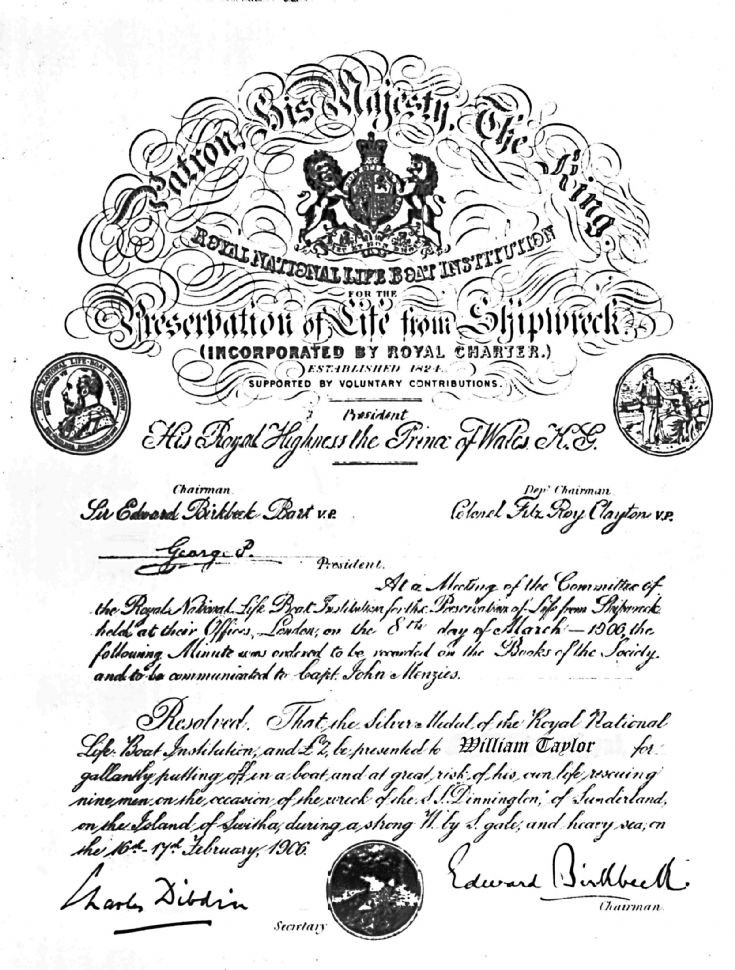 Patron, His Majesty, The King.
ROYAL NATIONAL LIFE BOAT INSTITUTION
FOR THE
Preservation of Life from Shipwreck.
(INCORPORATED BY ROYAL CHARTER.)
ESTABLISHED 1824.
SUPPORTED BY VOLUNTARY CONTRIBUTIONS.
President
His Royal Highness the Prince of Wales K.G.
Chairman
Sir Edward Birkbeck Bart V.P.
Depy. Chairman
Colonel Fitz Roy Clayton V.P.
George P.
President.
At a Meeting of the Committee of
the Royal National Life Boat Institution for the Preservation of Life from Shipwreck
held at their Offices, London, on the 8th day of March — 1906, the
following Minute was ordered to be recorded on the Books of the Society.
and to be communicated to Capt. John Menzies.
Resolved. That the Silver Medal of the Royal National
Life-Boat Institution, and £2, be presented to William Taylor for
gallantly putting off in a boat, and at great risk of his own life, rescuing
nine men, on the occasion of the wreck of the S.S. "Dinnington," of Sunderland,
on the Island of Switha, during a strong W. by S. gale, and heavy sea, on
the 16th-17th February, 1906.
Charles Dibdin
Secretary
Edward Birkbeck
Chairman